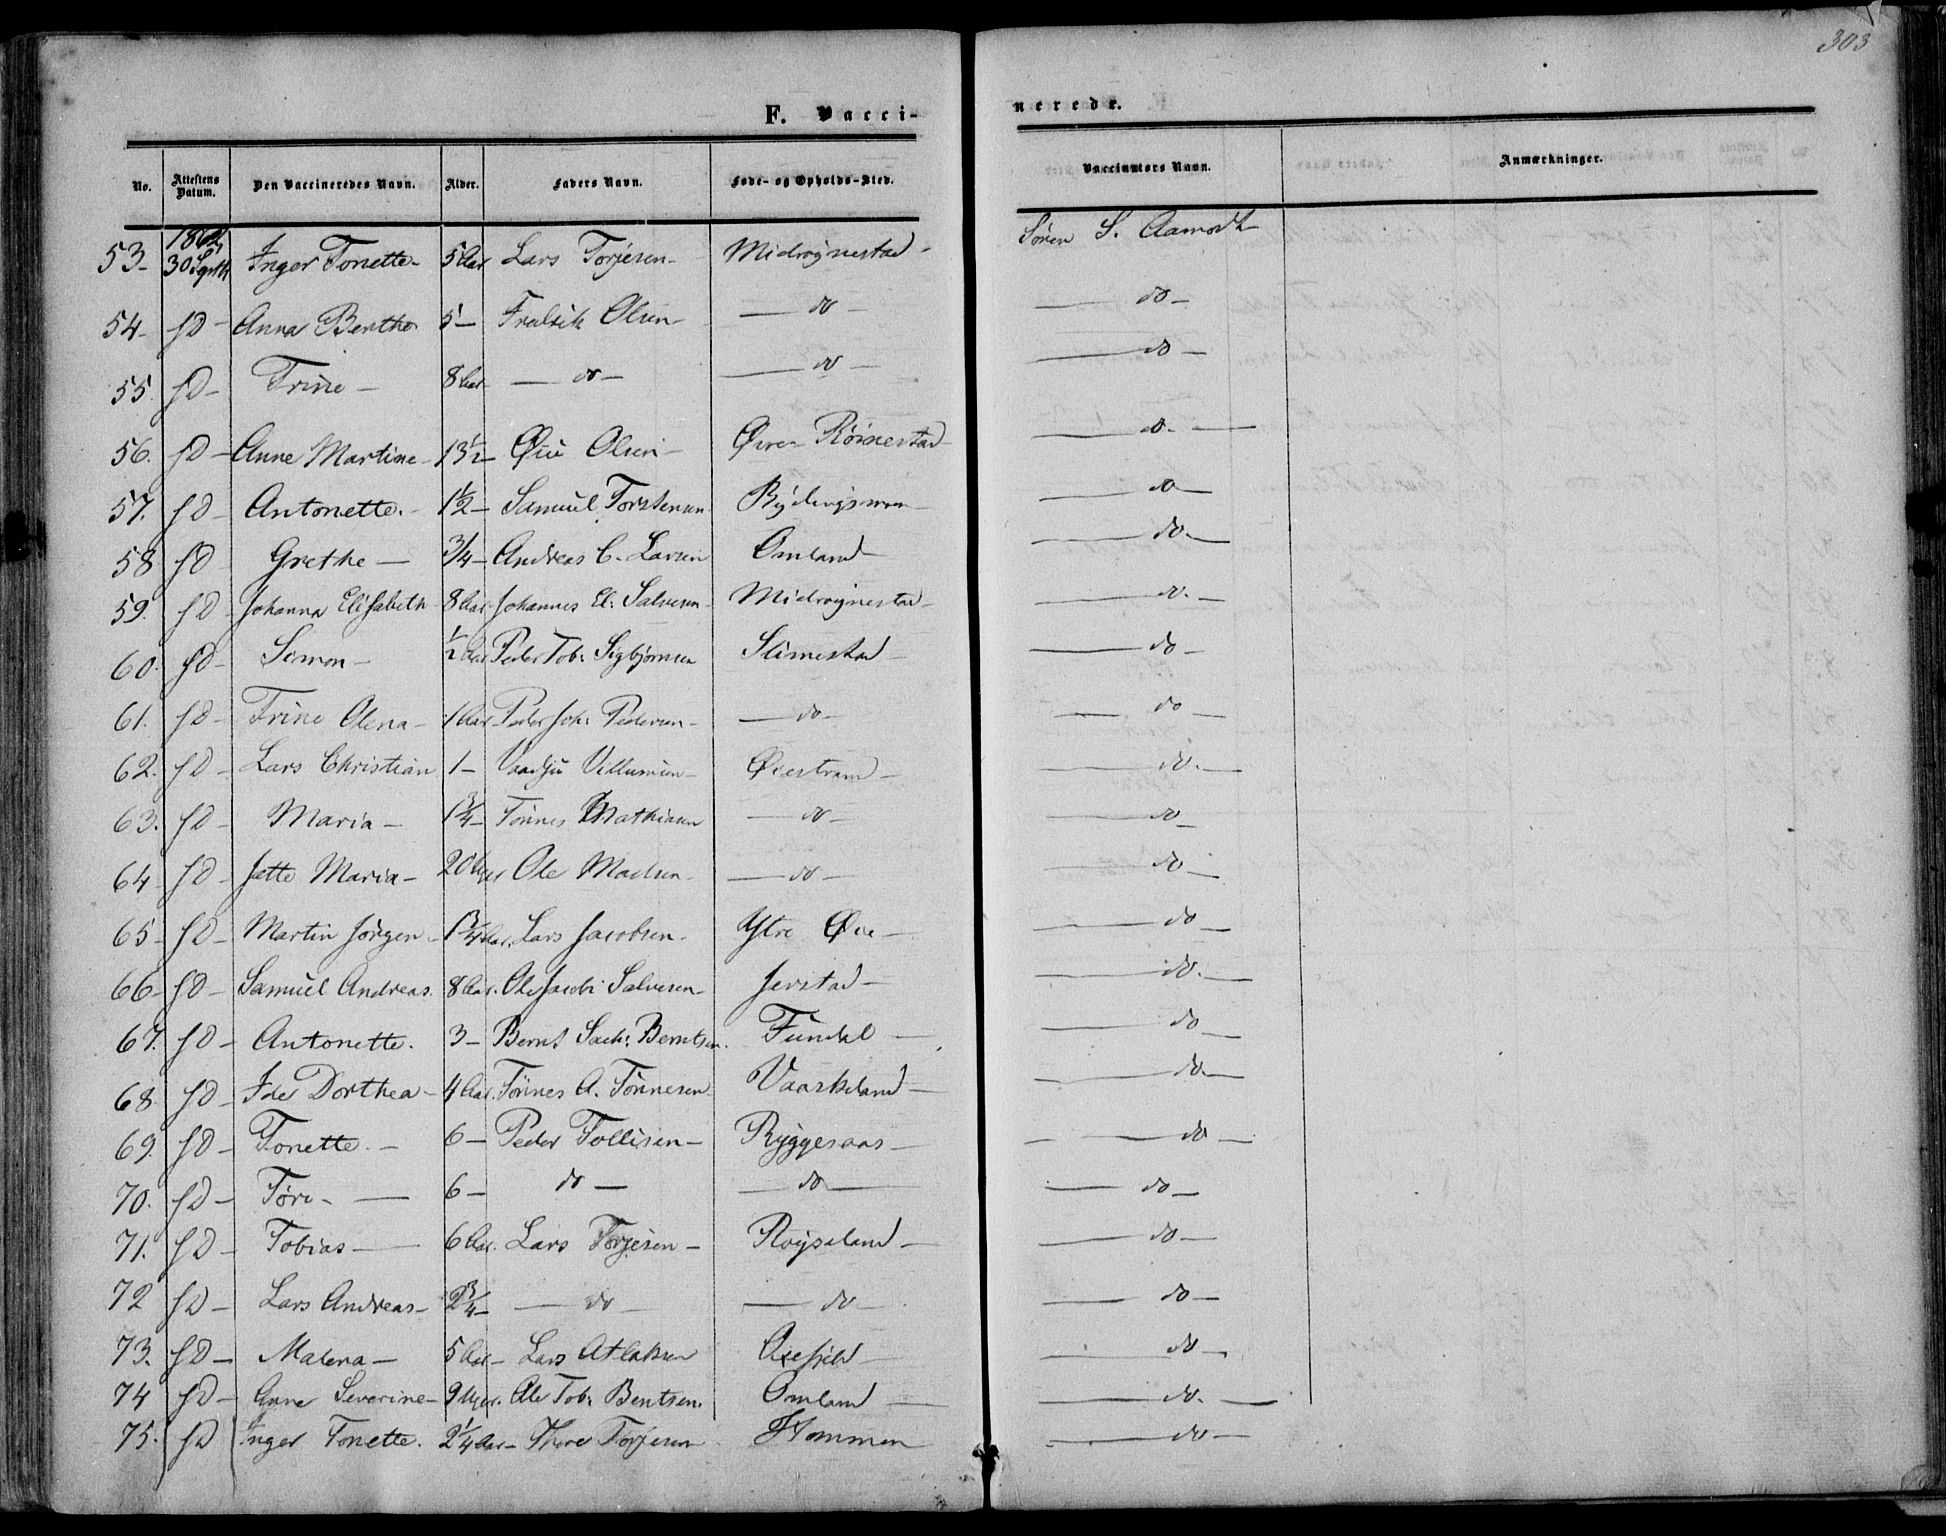 303
F. Vaccinerede.
No. Attestens Datum. Den Vaccineredes Navn. Alder. Faders Navn. Føde- og Opholds-Sted. Vaccinators Navn. Anmærkninger.
53- 30 Septb Inger Tonette- 5 Aar Lars Torjesen- Midrøgnestad- Søren S. Aamodt
54- sD- Anna Berthe 5- Fredrik Olsen- —do— —do—
55. sD- Trine- 8 Aar —do— —do— —do—
56. sD- Anne Martine- 13½- Øiu Olsen- Øvre Røinestad —do.—
57. sD- Antonette.- 1½- Samuel Torstensen —do—
58 sD- Grethe— ¾- Andreas C. Larsen Omland— —do.—
59. sD- Johanna Elisabeth 8 Aar Johannes El. Salvesen- Midrøgnestad- —do.—
60. sD- Simon- ½ Aar Peder Tob: Sigbjørnsen Slimestad- —do—
61. sD- Trine Olena- 1 Aar- Peder Joh: Pedersen- —do— —do—
62. sD- Lars Christian 1- Villumsen- Øiestrand- —do.—
63. sD- Maria- 1¾- Tønnes Mathiasen —do— —do—
64- sD- Jette Maria- 20 Uger Ole Madsen- —do— —do—
65- sD- Martin Jørgen- 1¾ Aar. Lars Jacobsen- Ytre Øie- —do—
66- sD- Samuel Andreas. 8 Aar. Ole Jacob: Salvesen- Jerstad- —do.—
67. sD- Antonette. 3- Bernt Sach: Berntsen. —do—
68. sD- Ida Dorthea- 4 Aar. Tønnes A. Tønnesen- Vaaskeland— —do—
69. sD- Tonette.- 6- Peder Tollisen- Ryggesaas- —do—
70. sD- Tore.— 6- do— —do— —do—
71. sD- Tobias— 6 Aar. Lars Torjesen- Røyseland- —do—
72 sD- Lars Andreas- 2¾- —do— —do— —do—
73. sD- Malena- 5 Aar- Lars Atlaksen —do—
74 sD- Anne Severine- 9 Uger. Ole Tob: Bentsen. Omland— —do.—
75. sD Inger Tonette. 2¼ Aar- Thore Torjesen Hommen —do—